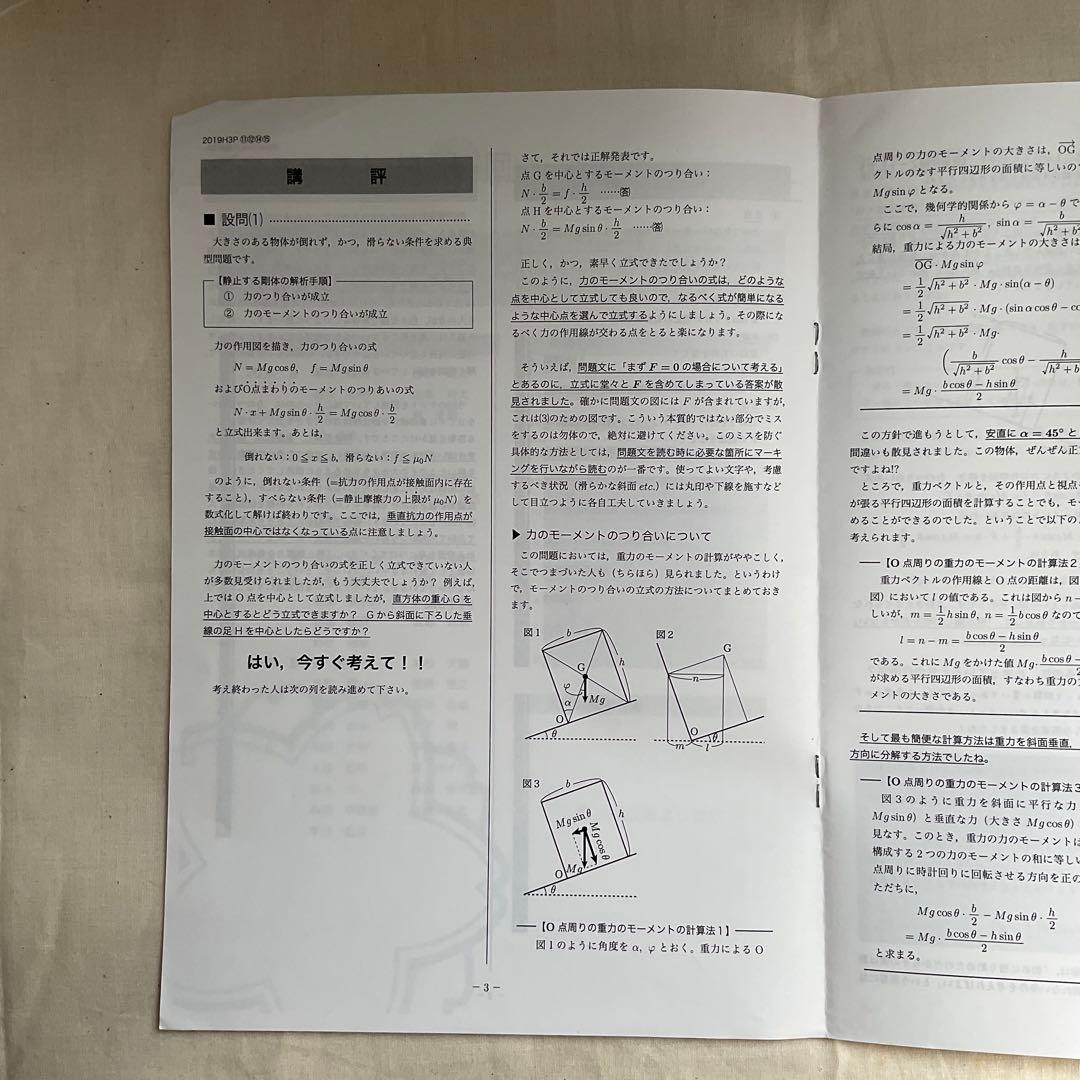 2019H3P ⑪⑫⑭⑮
講 評
■ 設問(1)
大きさのある物体が倒れず，かつ，滑らない条件を求める典
型問題です。
【静止する剛体の解析手順】
① 力のつり合いが成立
② 力のモーメントのつり合いが成立
力の作用図を描き，力のつり合いの式
N = Mg cos θ, f = Mg sin θ
およびO点まわりのモーメントのつりあいの式
N · x + Mg sin θ · h/2 = Mg cos θ · b/2
と立式出来ます。あとは，
倒れない：0 ≦ x ≦ b, 滑らない：f ≦ μ₀N
のように，倒れない条件（=抗力の作用点が接触面内に存在
すること），すべらない条件（=静止摩擦力の上限が μ₀N）を
数式化して解けば終わりです。ここでは，垂直抗力の作用点が
接触面の中心ではなくなっている点に注意しましょう。
力のモーメントのつり合いの式を正しく立式できていない人
が多数見受けられましたが，もう大丈夫でしょうか？ 例えば，
上では O 点を中心として立式しましたが，直方体の重心 G を
中心とするとどう立式できますか？ G から斜面に下ろした垂
線の足 H を中心としたらどうですか？
はい，今すぐ考えて！！
考え終わった人は次の列を読み進めて下さい。
さて，それでは正解発表です。
点 G を中心とするモーメントのつり合い：
N · b/2 = f · h/2 ……(答)
点 H を中心とするモーメントのつり合い：
N · b/2 = Mg sin θ · h/2 ……(答)
正しく，かつ，素早く立式できたでしょうか？
このように，力のモーメントのつり合いの式は，どのような
点を中心として立式しても良いので，なるべく式が簡単になる
ような中心点を選んで立式するようにしましょう。その際にな
るべく力の作用線が交わる点をとると楽になります。
そういえば，問題文に「まず F = 0 の場合について考える」
とあるのに，立式に堂々と F を含めてしまっている答案が散
見されました。確かに問題文の図には F が含まれていますが，
これは(3)のための図です。こういう本質的ではない部分でミス
をするのは勿体ので，絶対に避けてください。このミスを防ぐ
具体的な方法としては，問題文を読む時に必要な箇所にマーキ
ングを行いながら読むのが一番です。使ってよい文字や，考慮
するべき状況（滑らかな斜面 etc.）には丸印や下線を施すなど
して目立つように各自工夫していきましょう。
▶ 力のモーメントのつり合いについて
この問題においては，重力のモーメントの計算がややこしく，
そこでつまづいた人も（ちらほら）見られました。というわけ
で，モーメントのつり合いの立式の方法についてまとめておき
ます。
図1
b
h
G
φ
Mg
α
O
θ
図2
G
n
O
θ
m
l
図3
b
h
Mg sin θ
Mg cos θ
Mg
O
θ
【O 点周りの重力のモーメントの計算法1】
図1のように角度を α, φ とおく。重力による O
－ 3 －
点周りの力のモーメントの大きさは，OG
クトルのなす平行四辺形の面積に等しいの
Mg sin φ となる。
ここで，幾何学的関係から φ = α − θ で
らに cos α = h/√(h² + b²), sin α = b/√(h² + b²)
結局，重力による力のモーメントの大きさは
OG · Mg sin φ
= 1/2 √(h² + b²) · Mg · sin(α − θ)
= 1/2 √(h² + b²) · Mg · (sin α cos θ − co
= 1/2 √(h² + b²) · Mg ·
(b/√(h² + b²) cos θ − h/√(h² + b
= Mg · (b cos θ − h sin θ)/2
この方針で進もうとして，安直に α = 45° と
間違いも散見されました。この物体，ぜんぜん正
ですよね!?
ところで，重力ベクトルと，その作用点と視点
が張る平行四辺形の面積を計算することでも，モ
めることができるのでした。ということで以下の
考えられます。
【O 点周りの重力のモーメントの計算法2
重力ベクトルの作用線と O 点の距離は，図
図）において l の値である。これは図から n −
しいが，m = 1/2 h sin θ, n = 1/2 b cos θ なので
l = n − m = (b cos θ − h sin θ)/2
である。これに Mg をかけた値 Mg · (b cos θ −/2
が求める平行四辺形の面積，すなわち重力の
メントの大きさである。
そして最も簡便な計算方法は重力を斜面垂直，
方向に分解する方法でしたね。
【O 点周りの重力のモーメントの計算法3
図3のように重力を斜面に平行な力
Mg sin θ）と垂直な力（大きさ Mg cos θ）
見なす。このとき，重力の力のモーメントは
構成する2つの力のモーメントの和に等しい
点周りに時計回りに回転させる方向を正の
ただちに，
Mg cos θ · b/2 − Mg sin θ · h/2
= Mg · (b cos θ − h sin θ)/2
と求まる。